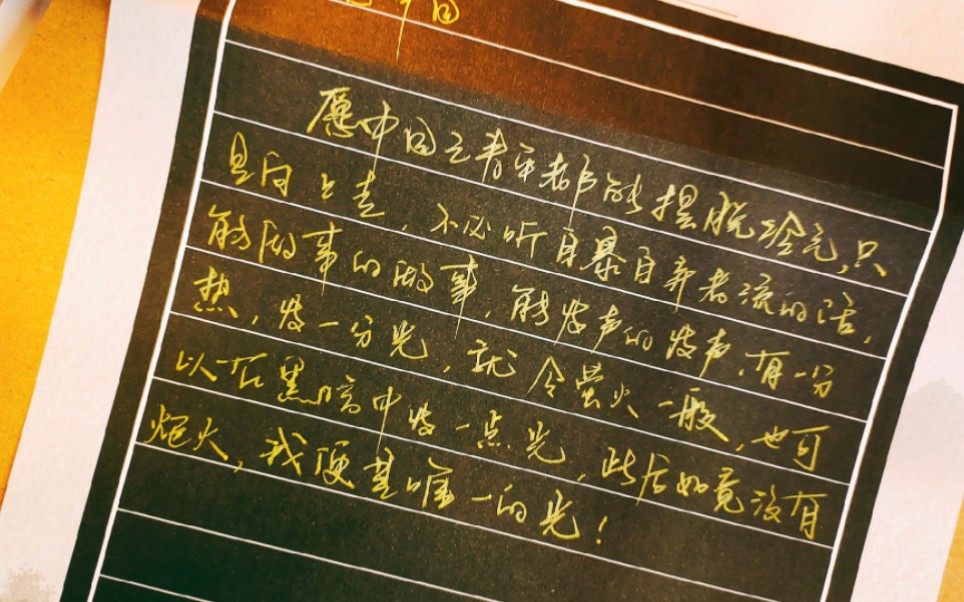 愿中国之青年都能摆脱冷气,只
是向上走,不必听自暴自弃者流的话,
能做事的做事,能发声的发声,有一分
热,发一分光,就令萤火一般,也可
以在黑暗中发一点光,此后如竟没有
炬火,我便是唯一的光!